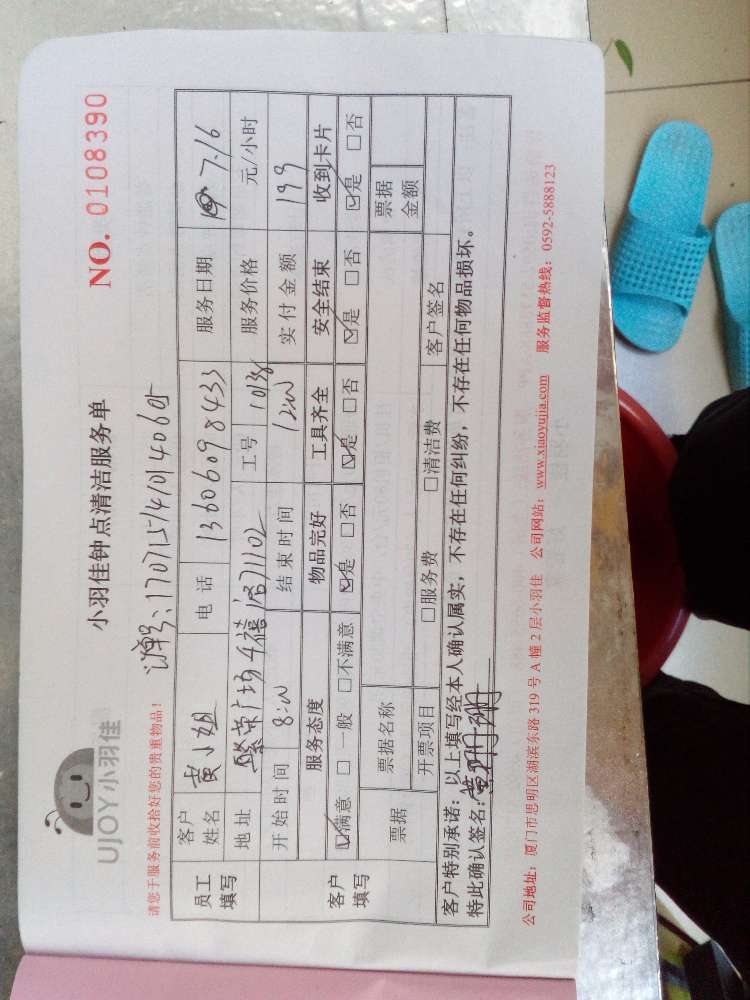 UJOY小羽佳
小羽佳钟点清洁服务单
NO. 0108390
请您于服务前收拾好您的贵重物品!
订单号:17071574101406
员工填写
客户姓名 黄小姐 电话 13606098433 服务日期 7.16
地址 繁荣广场千禧阁1102 工号 1038 服务价格 元/小时
开始时间 8:00 结束时间 1200 实付金额 199
客户填写
服务态度 物品完好 工具齐全 安全结束 收到卡片
☑满意 □一般 □不满意 ☑是 □否 ☑是 □否 ☑是 □否 ☑是 □否
票据 票据名称 票据金额
开票项目 □服务费 □清洁费 客户签名
客户特别承诺:以上填写经本人确认属实,不存在任何纠纷,不存在任何物品损坏。
特此确认签名:
公司地址:厦门市思明区湖滨东路 319 号 A 幢 2 层小羽佳 公司网站:www.xiaoyujia.com 服务监督热线:0592-5888123